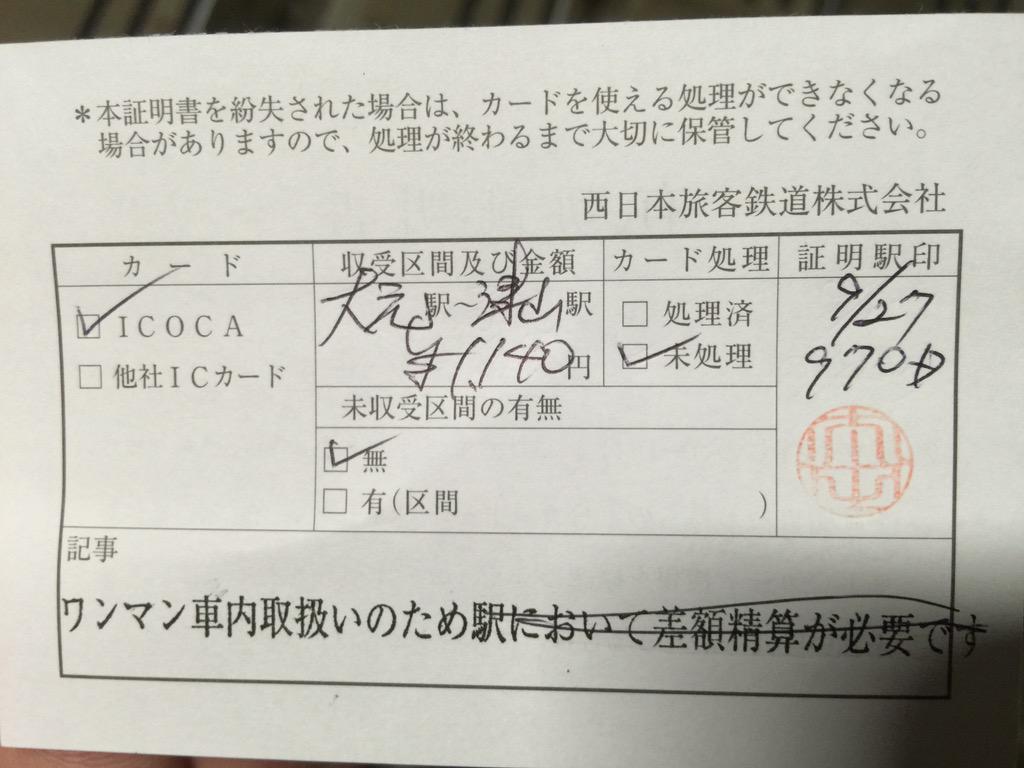 *本証明書を紛失された場合は、カードを使える処理ができなくなる
場合がありますので、処理が終わるまで大切に保管してください。
西日本旅客鉄道株式会社
カード
収受区間及び金額
カード処理
証明駅印
☑ICOCA
□他社ICカード
大元駅〜津山駅
¥1,140円
□処理済
☑未処理
9/27
未収受区間の有無
☑無
□有(区間 )
記事
ワンマン車内取扱いのため駅において差額精算が必要です